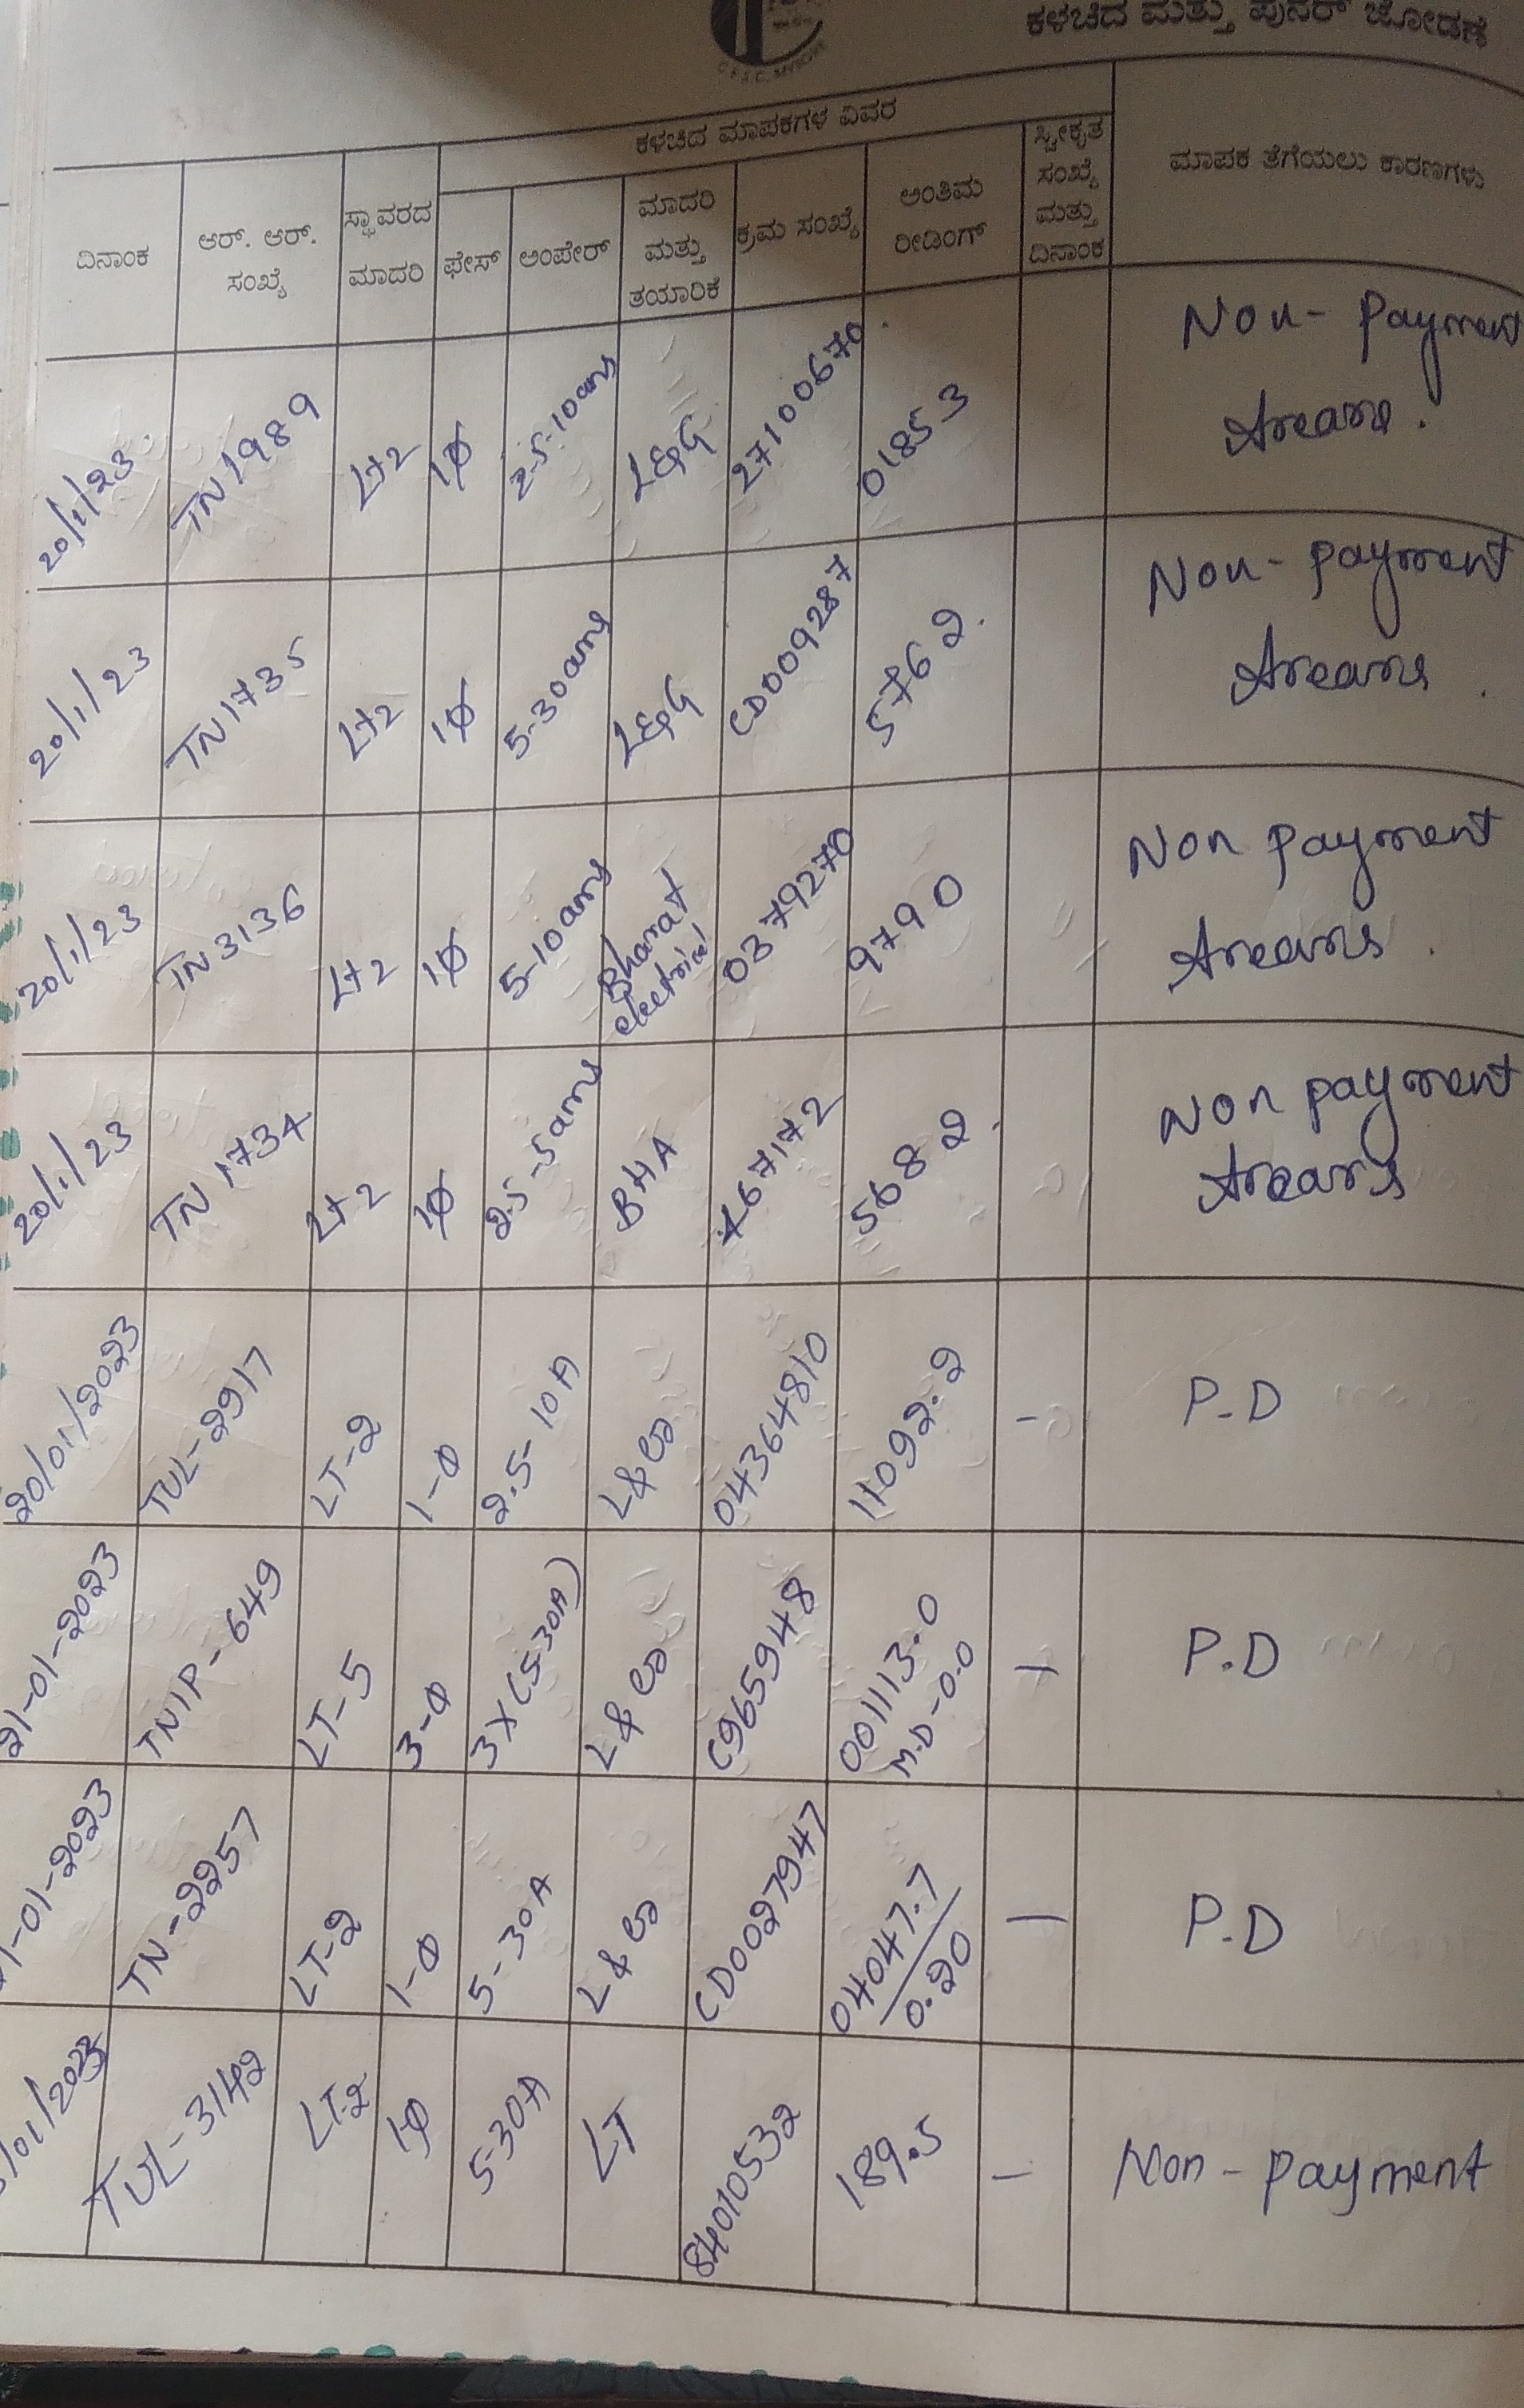 ಕಳಚಿದ ಮತ್ತು ಪುನರ್ ಜೋಡಣೆ
C.E.S.C. MYSORE
ಕಳಚಿದ ಮಾಪಕಗಳ ವಿವರ
ದಿನಾಂಕ ಆರ್. ಆರ್. ಸಂಖ್ಯೆ ಸ್ಥಾವರದ ಮಾದರಿ ಫೇಸ್ ಅಂಪೇರ್ ಮಾದರಿ ಮತ್ತು ತಯಾರಿಕೆ ಕ್ರಮ ಸಂಖ್ಯೆ ಅಂತಿಮ ರೀಡಿಂಗ್ ಸ್ವೀಕೃತ ಸಂಖ್ಯೆ ಮತ್ತು ದಿನಾಂಕ ಮಾಪಕ ತೆಗೆಯಲು ಕಾರಣಗಳು
20/1/23 TN 1989 Lt2 1Ø 2.5-10am L&G 27100670 01853 Non-Payment Arears.
20/1/23 TN1735 Lt2 1Ø 5-30am L&G CD009287 5762. Non-payment Arears.
20/1/23 TN3136 Lt2 1Ø 5-10am Bharat electrical 03792270 9790 Non payment Arears.
20/1/23 TN 1734 Lt2 1Ø 2.5-5am BHA 5682. Non payment Arears
20/01/2023 TUL-2917 LT-2 1-Ø 2.5-10A L& 04364810 11092.2 - P.D
21-01-2023 TNIP-649 LT-5 3-Ø 3X(5-30A) L& C965948 001113.0 M.D-0.0 - P.D
-01-2023 TN-2257 LT-2 1-Ø 5-30A L& CD0027947 04047.7 0.20 - P.D
/01/2023 TUL-3142 LT-2 1-Ø 5-30A LT 84010532 189.5 - Non-payment